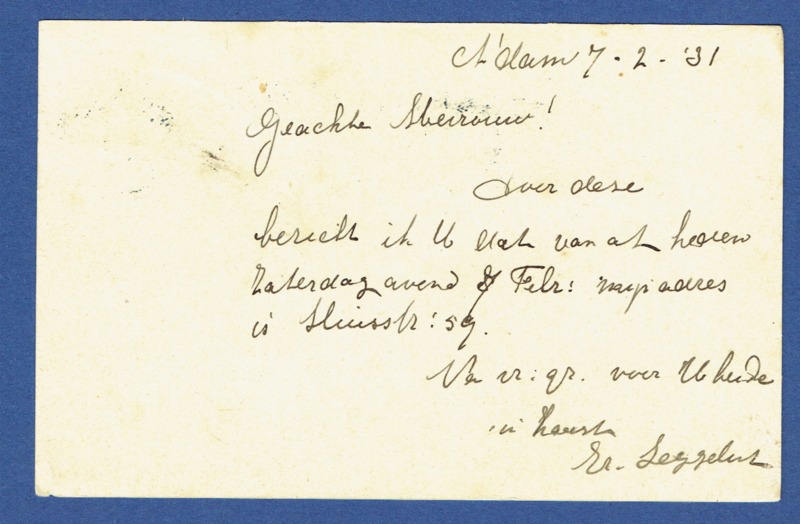 A'dam 7-2-'31
Geachte Mevrouw!
Door deze
bericht ik U dat van af heden
Zaterdag avond 7 Febr: mijn adres
is Sluisstr: 59.
Na vr: gr. voor U beide
in haast